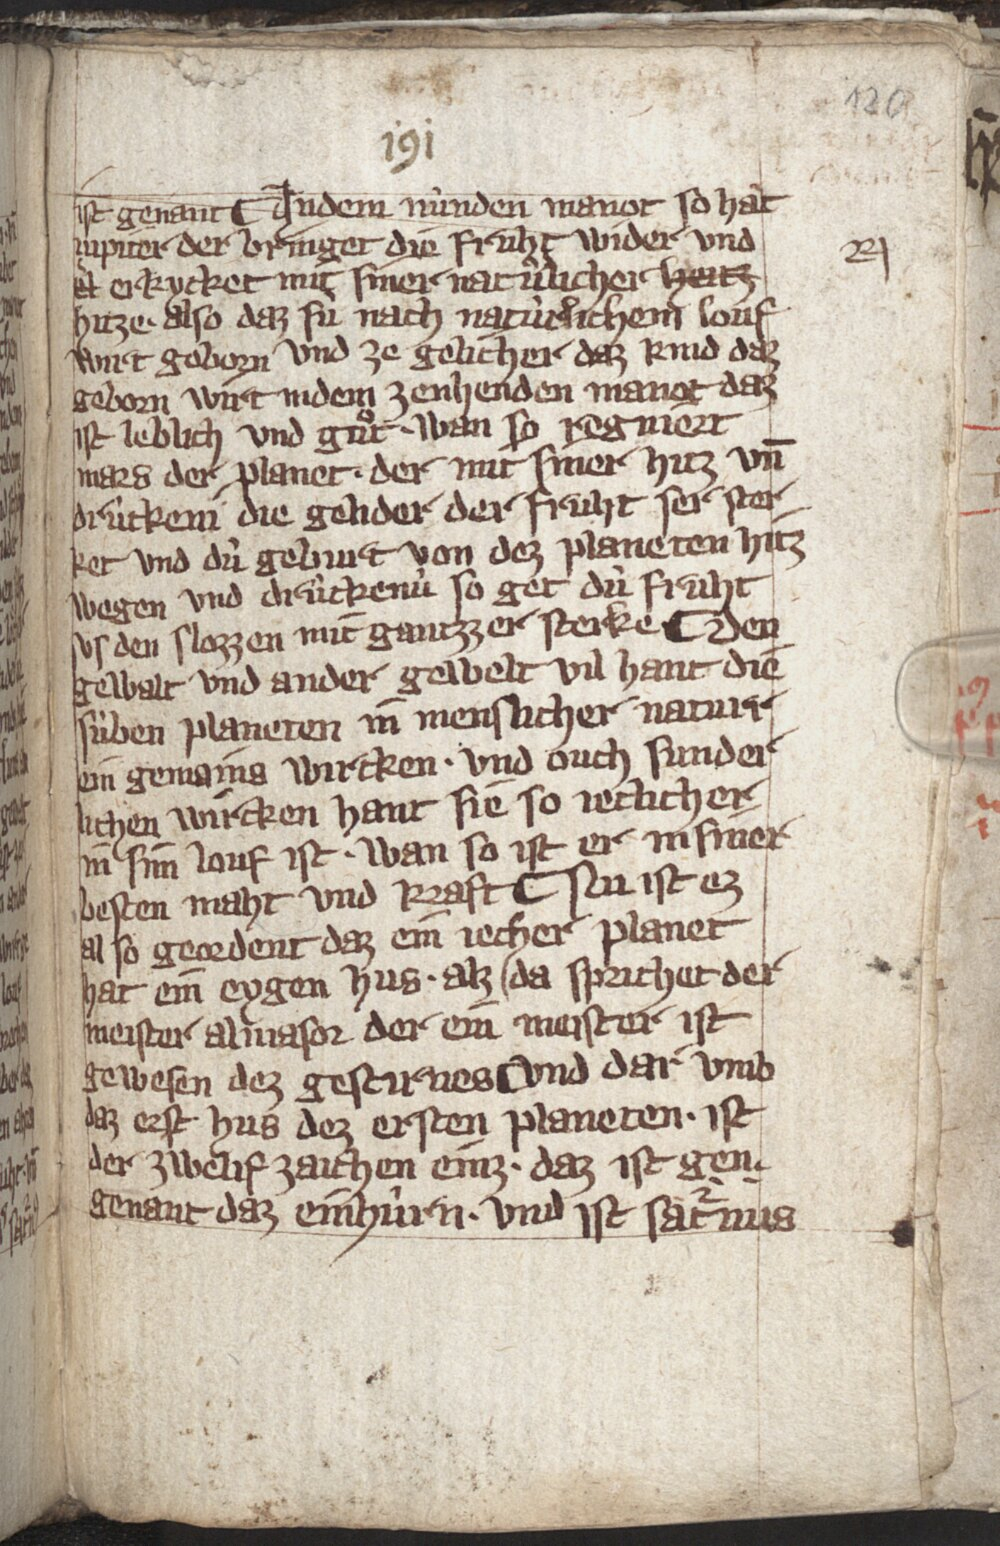 120
191
ist genant ⸿ Indem nu̍nden manot so hat
iupiter der bringet die fruht wider vnd
er kycket mit siner natu̍rlicher heitz
hitze · also daz su̍ nach natu̍rlichem louf
wirt geborn vnd ze gelicher daz kind daz
geborn wirt indem zenhenden manot daz
ist leblich vnd gůt · wan so regniert
mars der planet · der mit siner hitz vn̄
dru̍ckeni die gelider der fruht ser ster
ket vnd du̍ geburt von dez planeten hitz
wegen vnd dru̍ckenu̍ so get du̍ fruht
vs den slozzen mit gantzzer sterke ⸿ Den
gewalt vnd ander gewelt vil hant die
su̍ben planeten in menslicher natur
ein gemains wircken · vnd ouch sunder
lichen wircken hant sie so ieclicher
in sim louf ist · wan so ist er in siner
besten maht vnd kraft ⸿ Nu ist ez
al so geordent daz ein iecher planet
hat ein eygen hus · alz da sprichet der
meister almasor der ein meister ist
gewesen dez gestirnes ⸿ vnd dar vmb
daz erst hus dez ersten planeten · ist
der zwelif zaichen einz · daz ist gen
genant daz einhu̍rn · vnd ist sat²nus